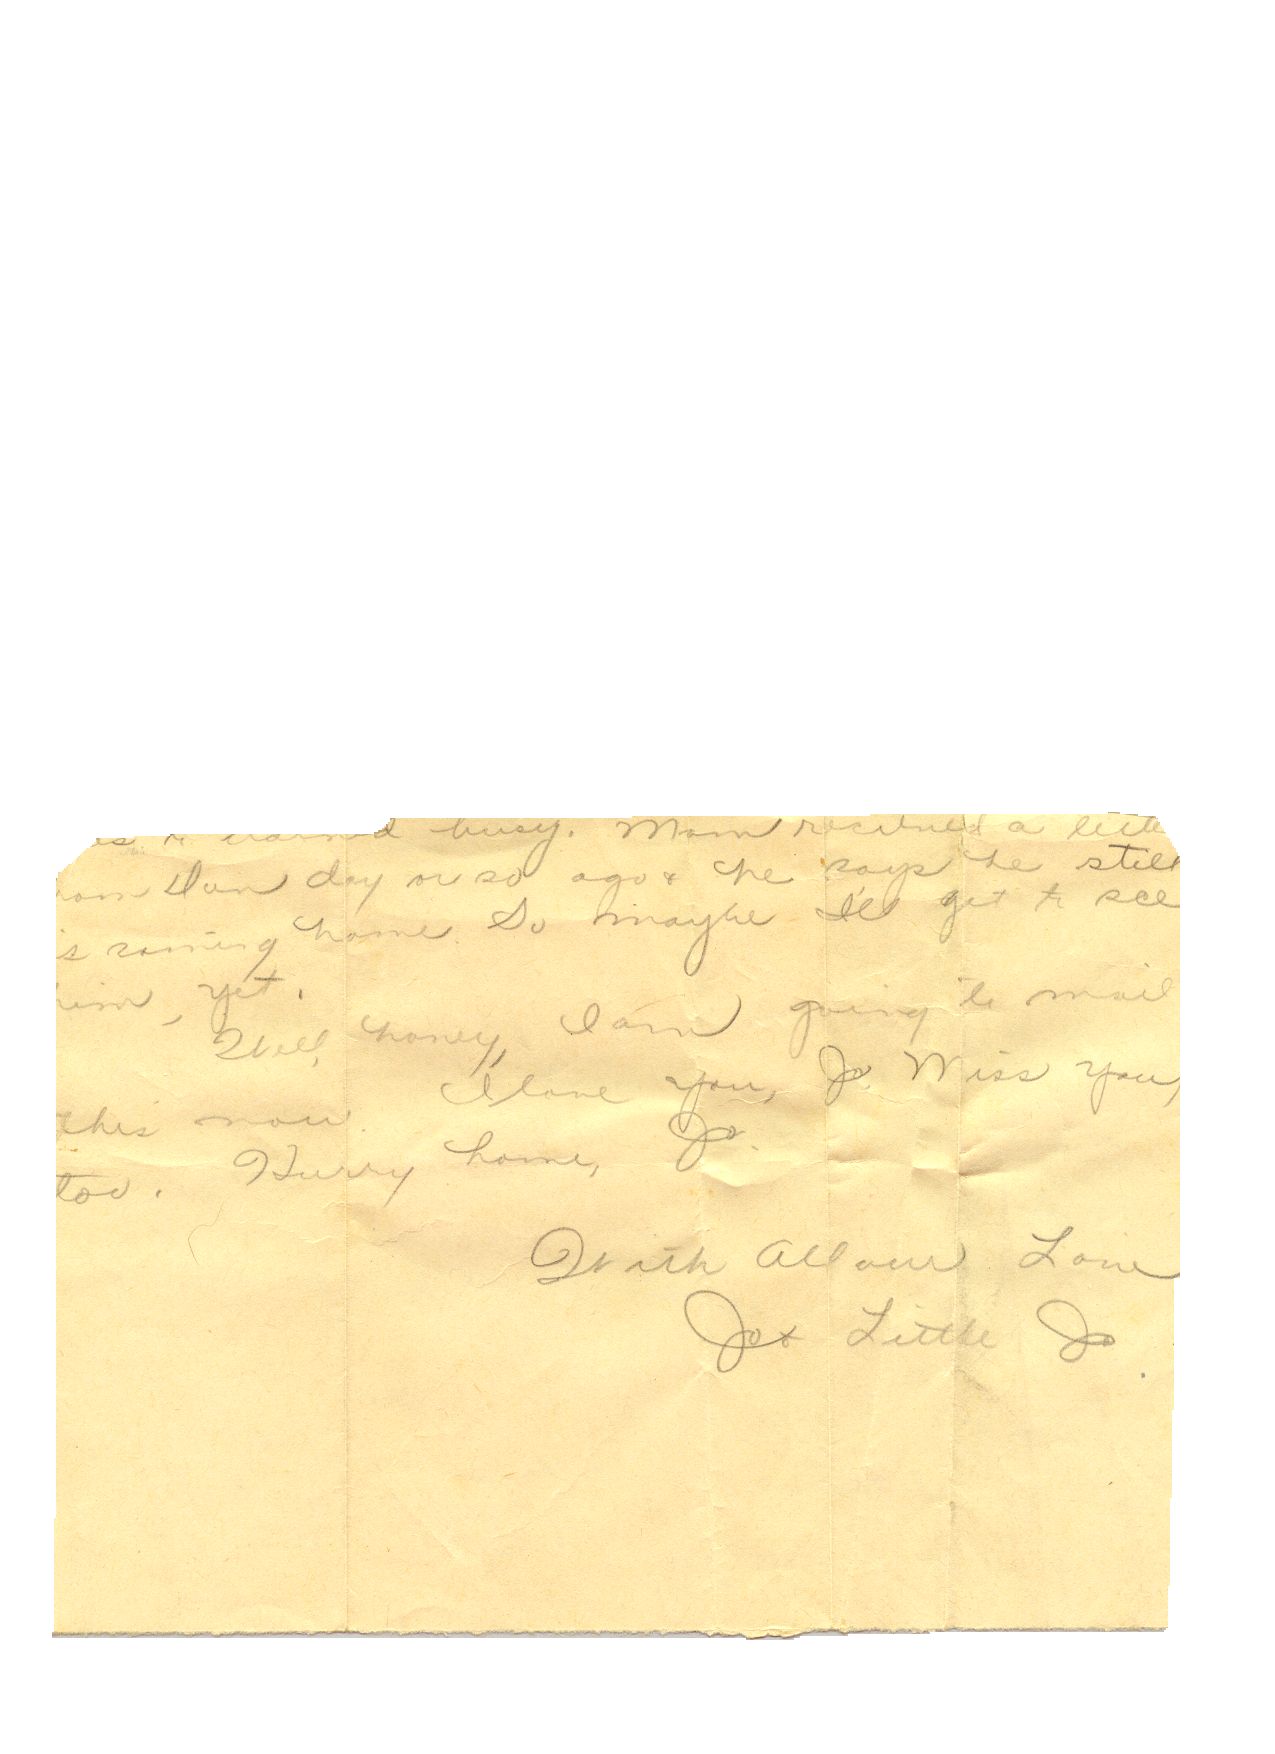 busy. Mom received a lette
Dan day or so ago & he says he still
is coming home. So maybe I'll get to see
him, yet.
Well, honey, I am going to mail
this now. I love you, Jo. Miss you,
too. Hurry home, Jo.
With All our Love
Jo & Little Jo.